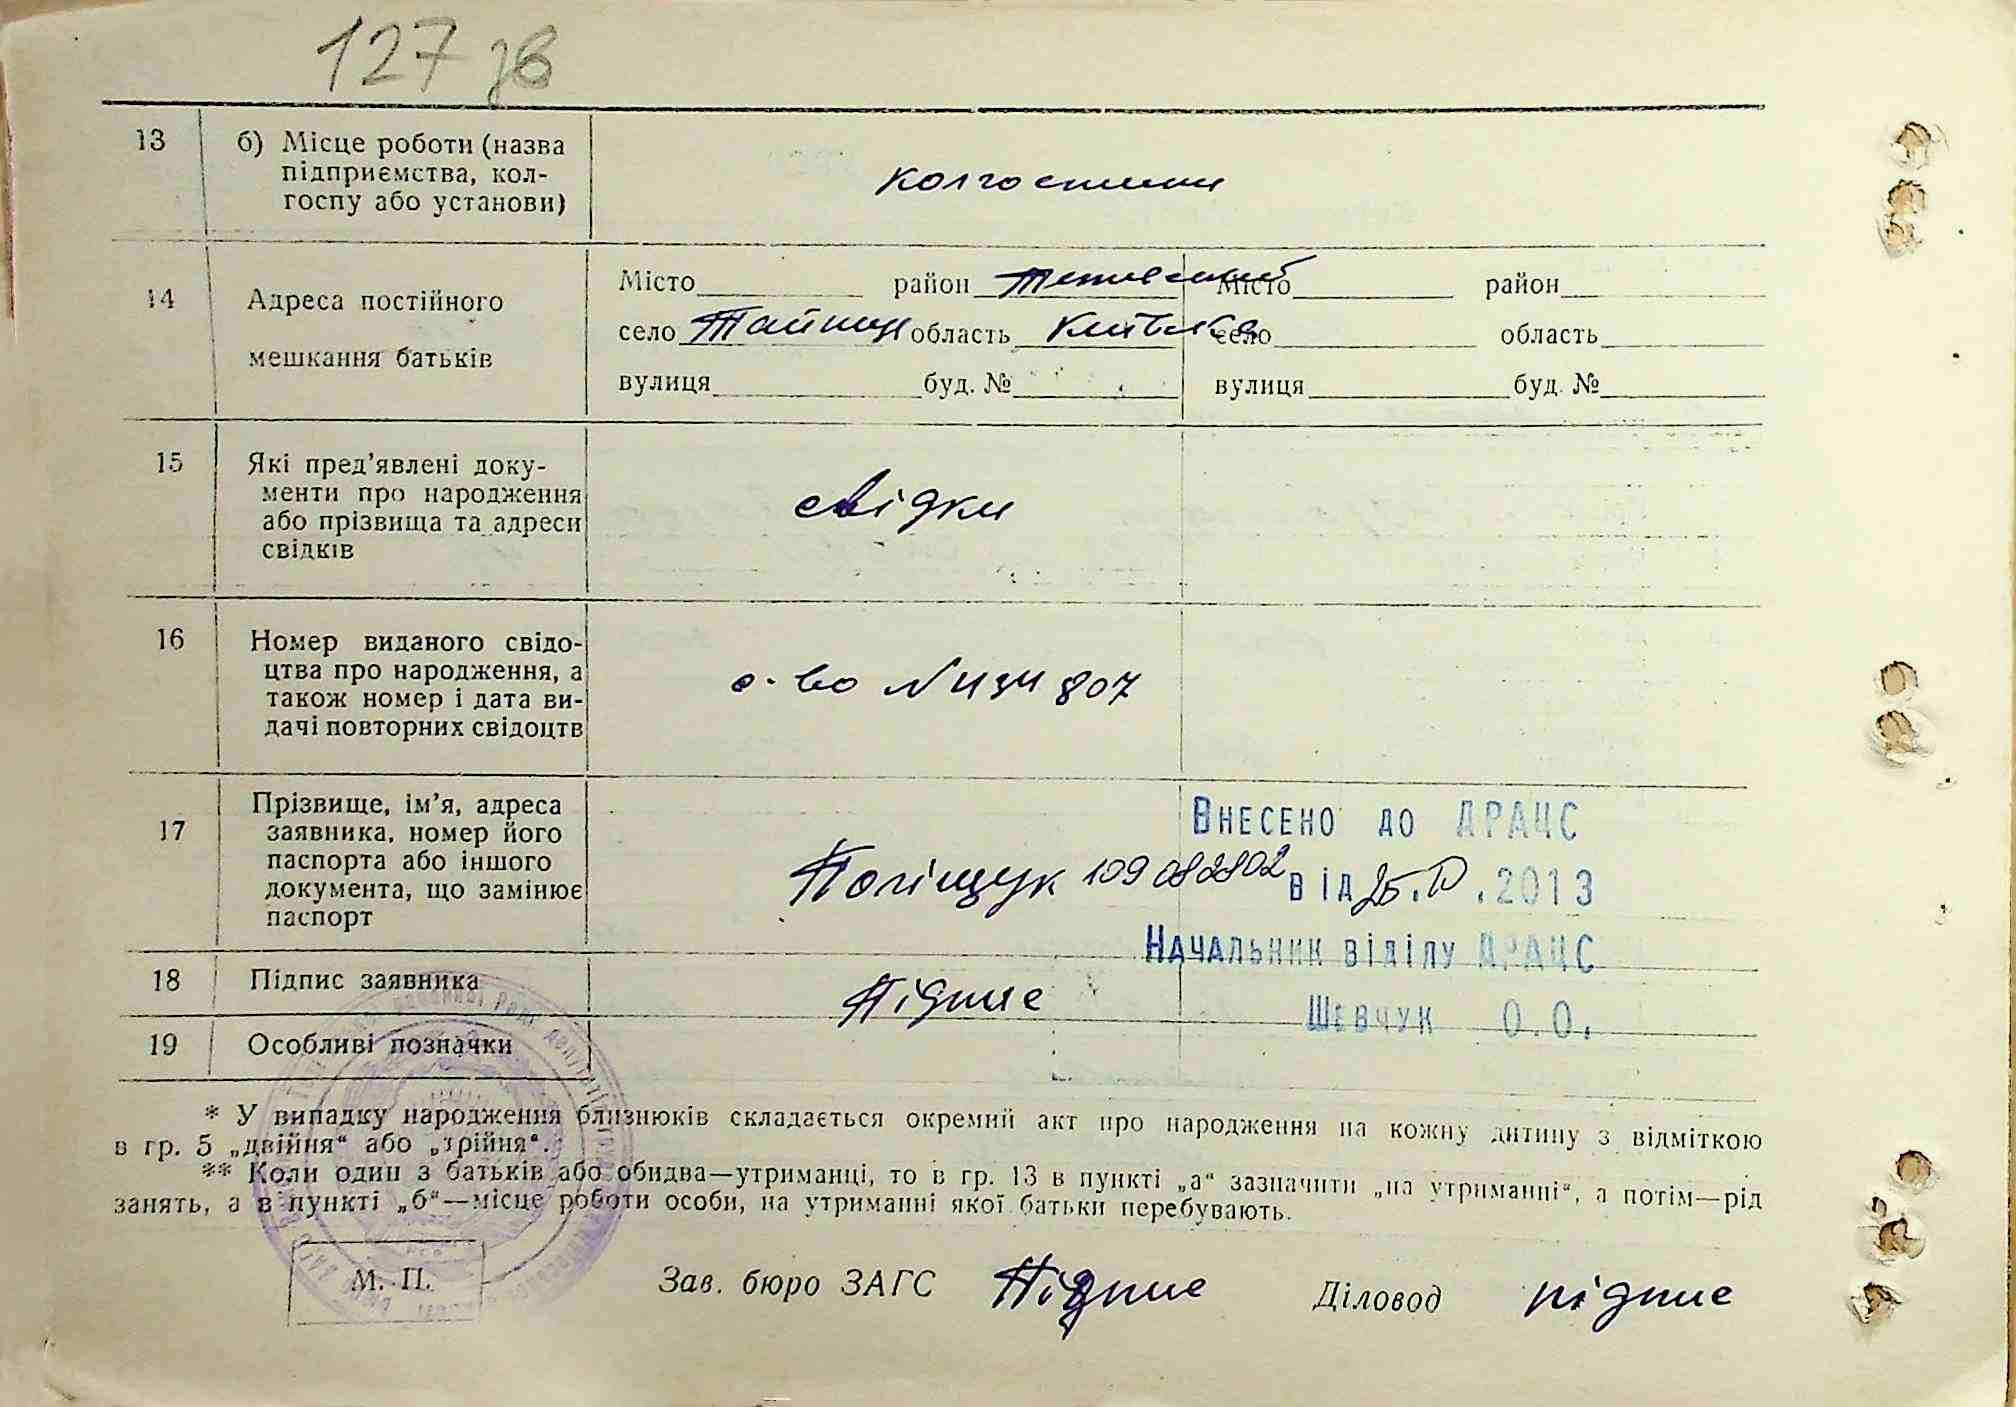 127 зв
13 б) Місце роботи (назва
підприємства, кол-
госпу або установи)
колгоспник
14 Адреса постійного
мешкання батьків
Місто район Тетіївський Місто район
село область Київська село область
вулиця буд. № вулиця буд. №
15 Які пред’явлені доку-
менти про народження
або прізвища та адреси
свідків
свідки
16 Номер виданого свідо-
цтва про народження, а
також номер і дата ви-
дачі повторних свідоцтв
с-во №
17 Прізвище, ім’я, адреса
заявника, номер його
паспорта або іншого
документа, що замінює
паспорт
Поліщук
Внесено до ДРАЦС
від .2013
Начальник відділу ДРАЦС
Шевчук О.О.
18 Підпис заявника
Підпис
19 Особливі позначки
* У випадку народження близнюків складається окремий акт про народження на кожну дитину з відміткою
в гр. 5 „двійня“ або „трійня“.
** Коли один з батьків або обидва—утриманці, то в гр. 13 в пункті „а“ зазначити „на утриманні“, а потім—рід
занять, а в пункті „б“—місце роботи особи, на утриманні якої батьки перебувають.
М. П. Зав. бюро ЗАГС Підпис Діловод підпис